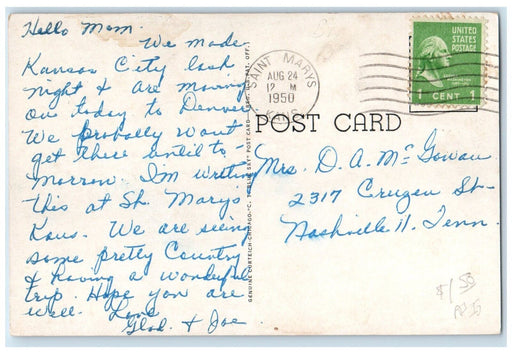 Hello Mom.
We made
Kansas City last
night & are moving
on today to Denver
We probally wont
get there until to-
morrow. I'm writing
this at St. Marys
Kans. We are seeing
some pretty Country
& having a wonderful
trip. Hope you are
well. Love
Glad. & Joe
SAINT MARYS
AUG 24
12 M
1950
KANS.
UNITED
STATES
POSTAGE
1 CENT 1
POST CARD
Mrs. D. A. McGowan
2317 Cruzen St-
Nashville 11. Tenn.
GENUINE CURTEICH-CHICAGO
$1.50